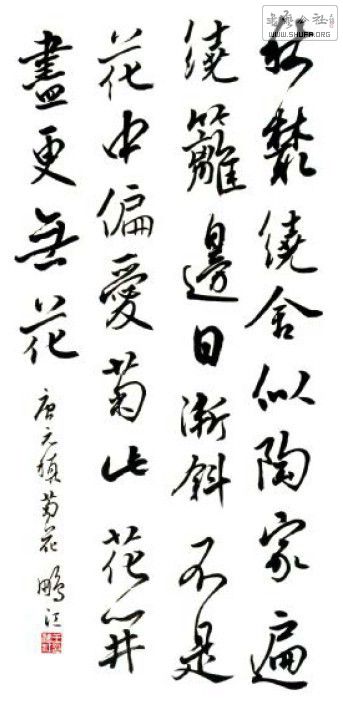 秋叢繞舍似陶家遍
繞籬邊日漸斜不是
花中偏愛菊此花開
盡更無花
唐元稹菊花 鵬江
WWW.SHUFA.ORG